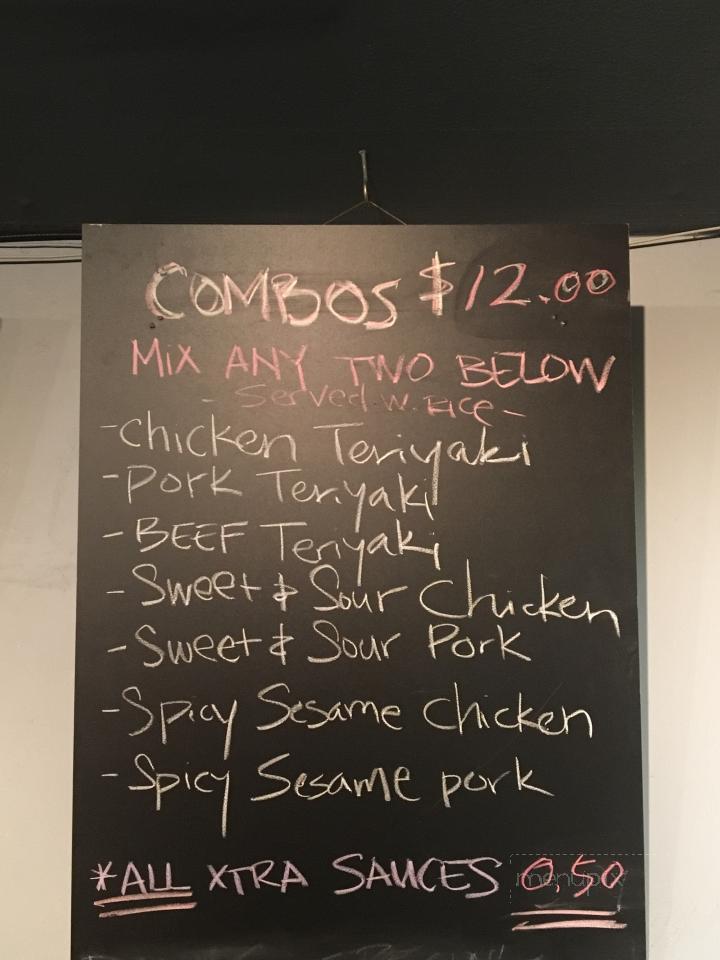 COMBOS $12.00
MIX ANY TWO BELOW
- Served w. Rice -
- chicken Teriyaki
- Pork Teriyaki
- BEEF Teriyaki
- Sweet & Sour Chicken
- Sweet & Sour Pork
- Spicy Sesame chicken
- Spicy Sesame pork
*ALL XTRA SAUCES 0.50
menupix